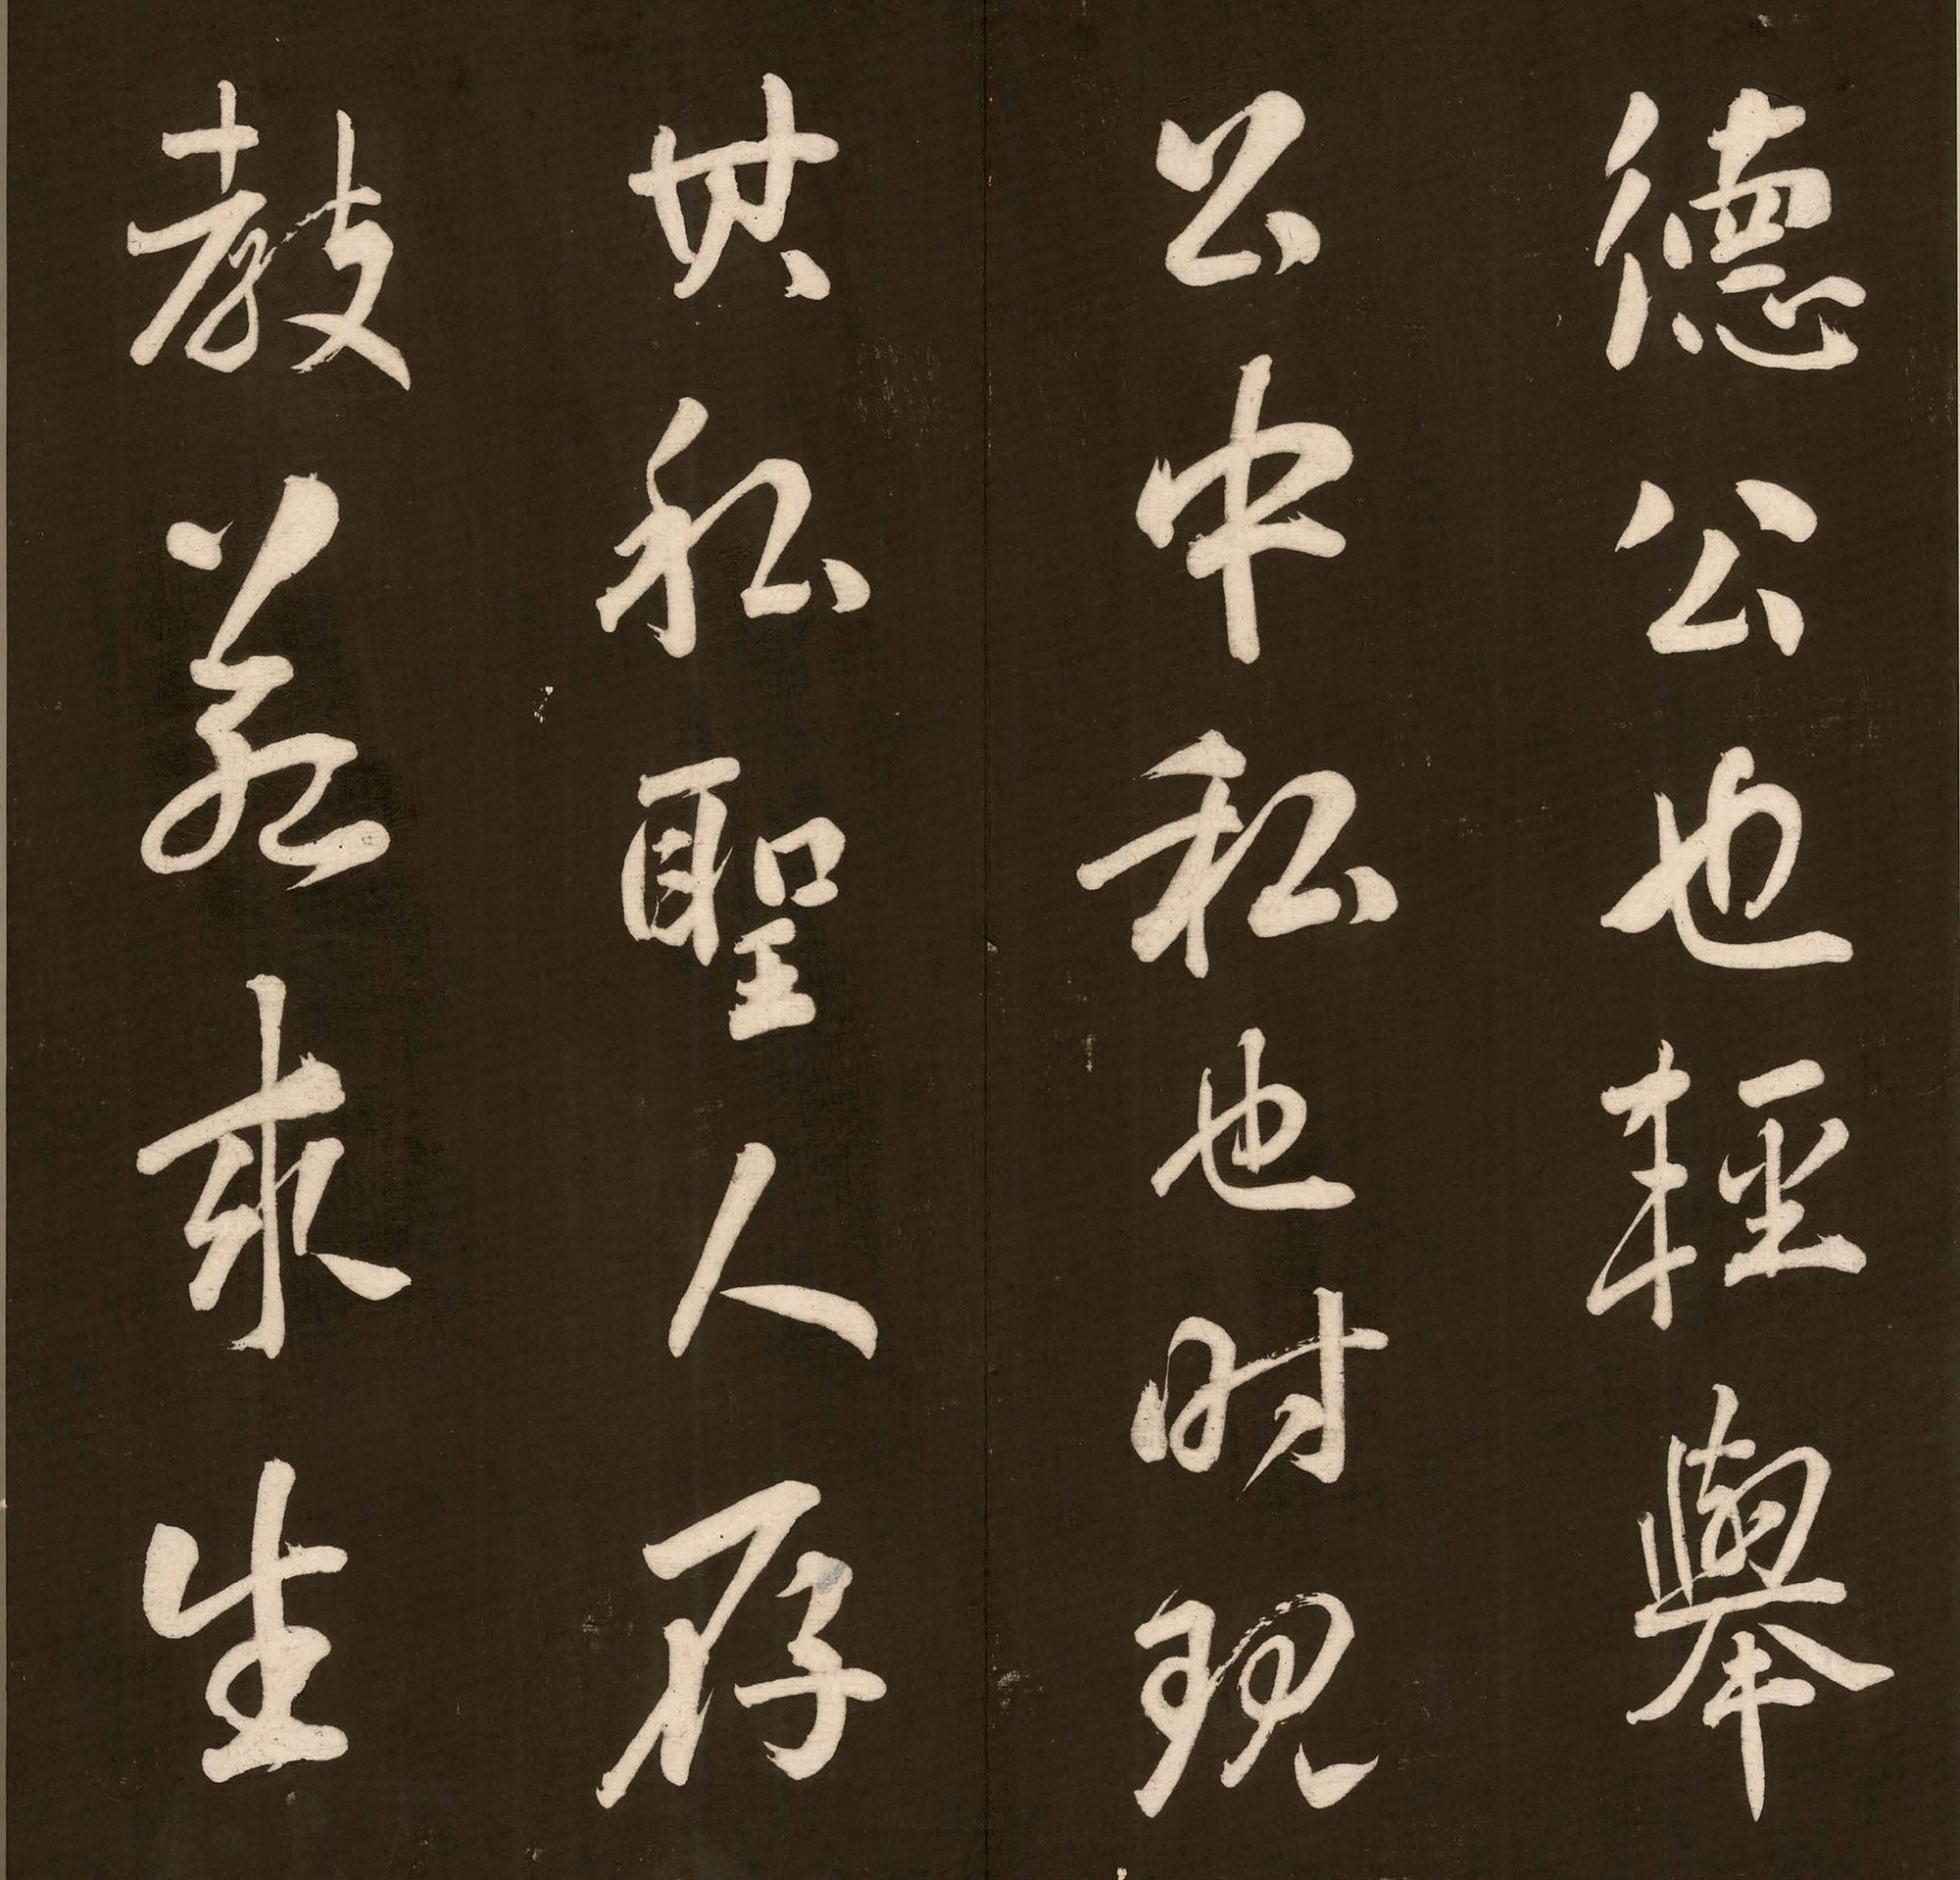 德公也輕舉
公中私也时現
其私聖人存
教若求生